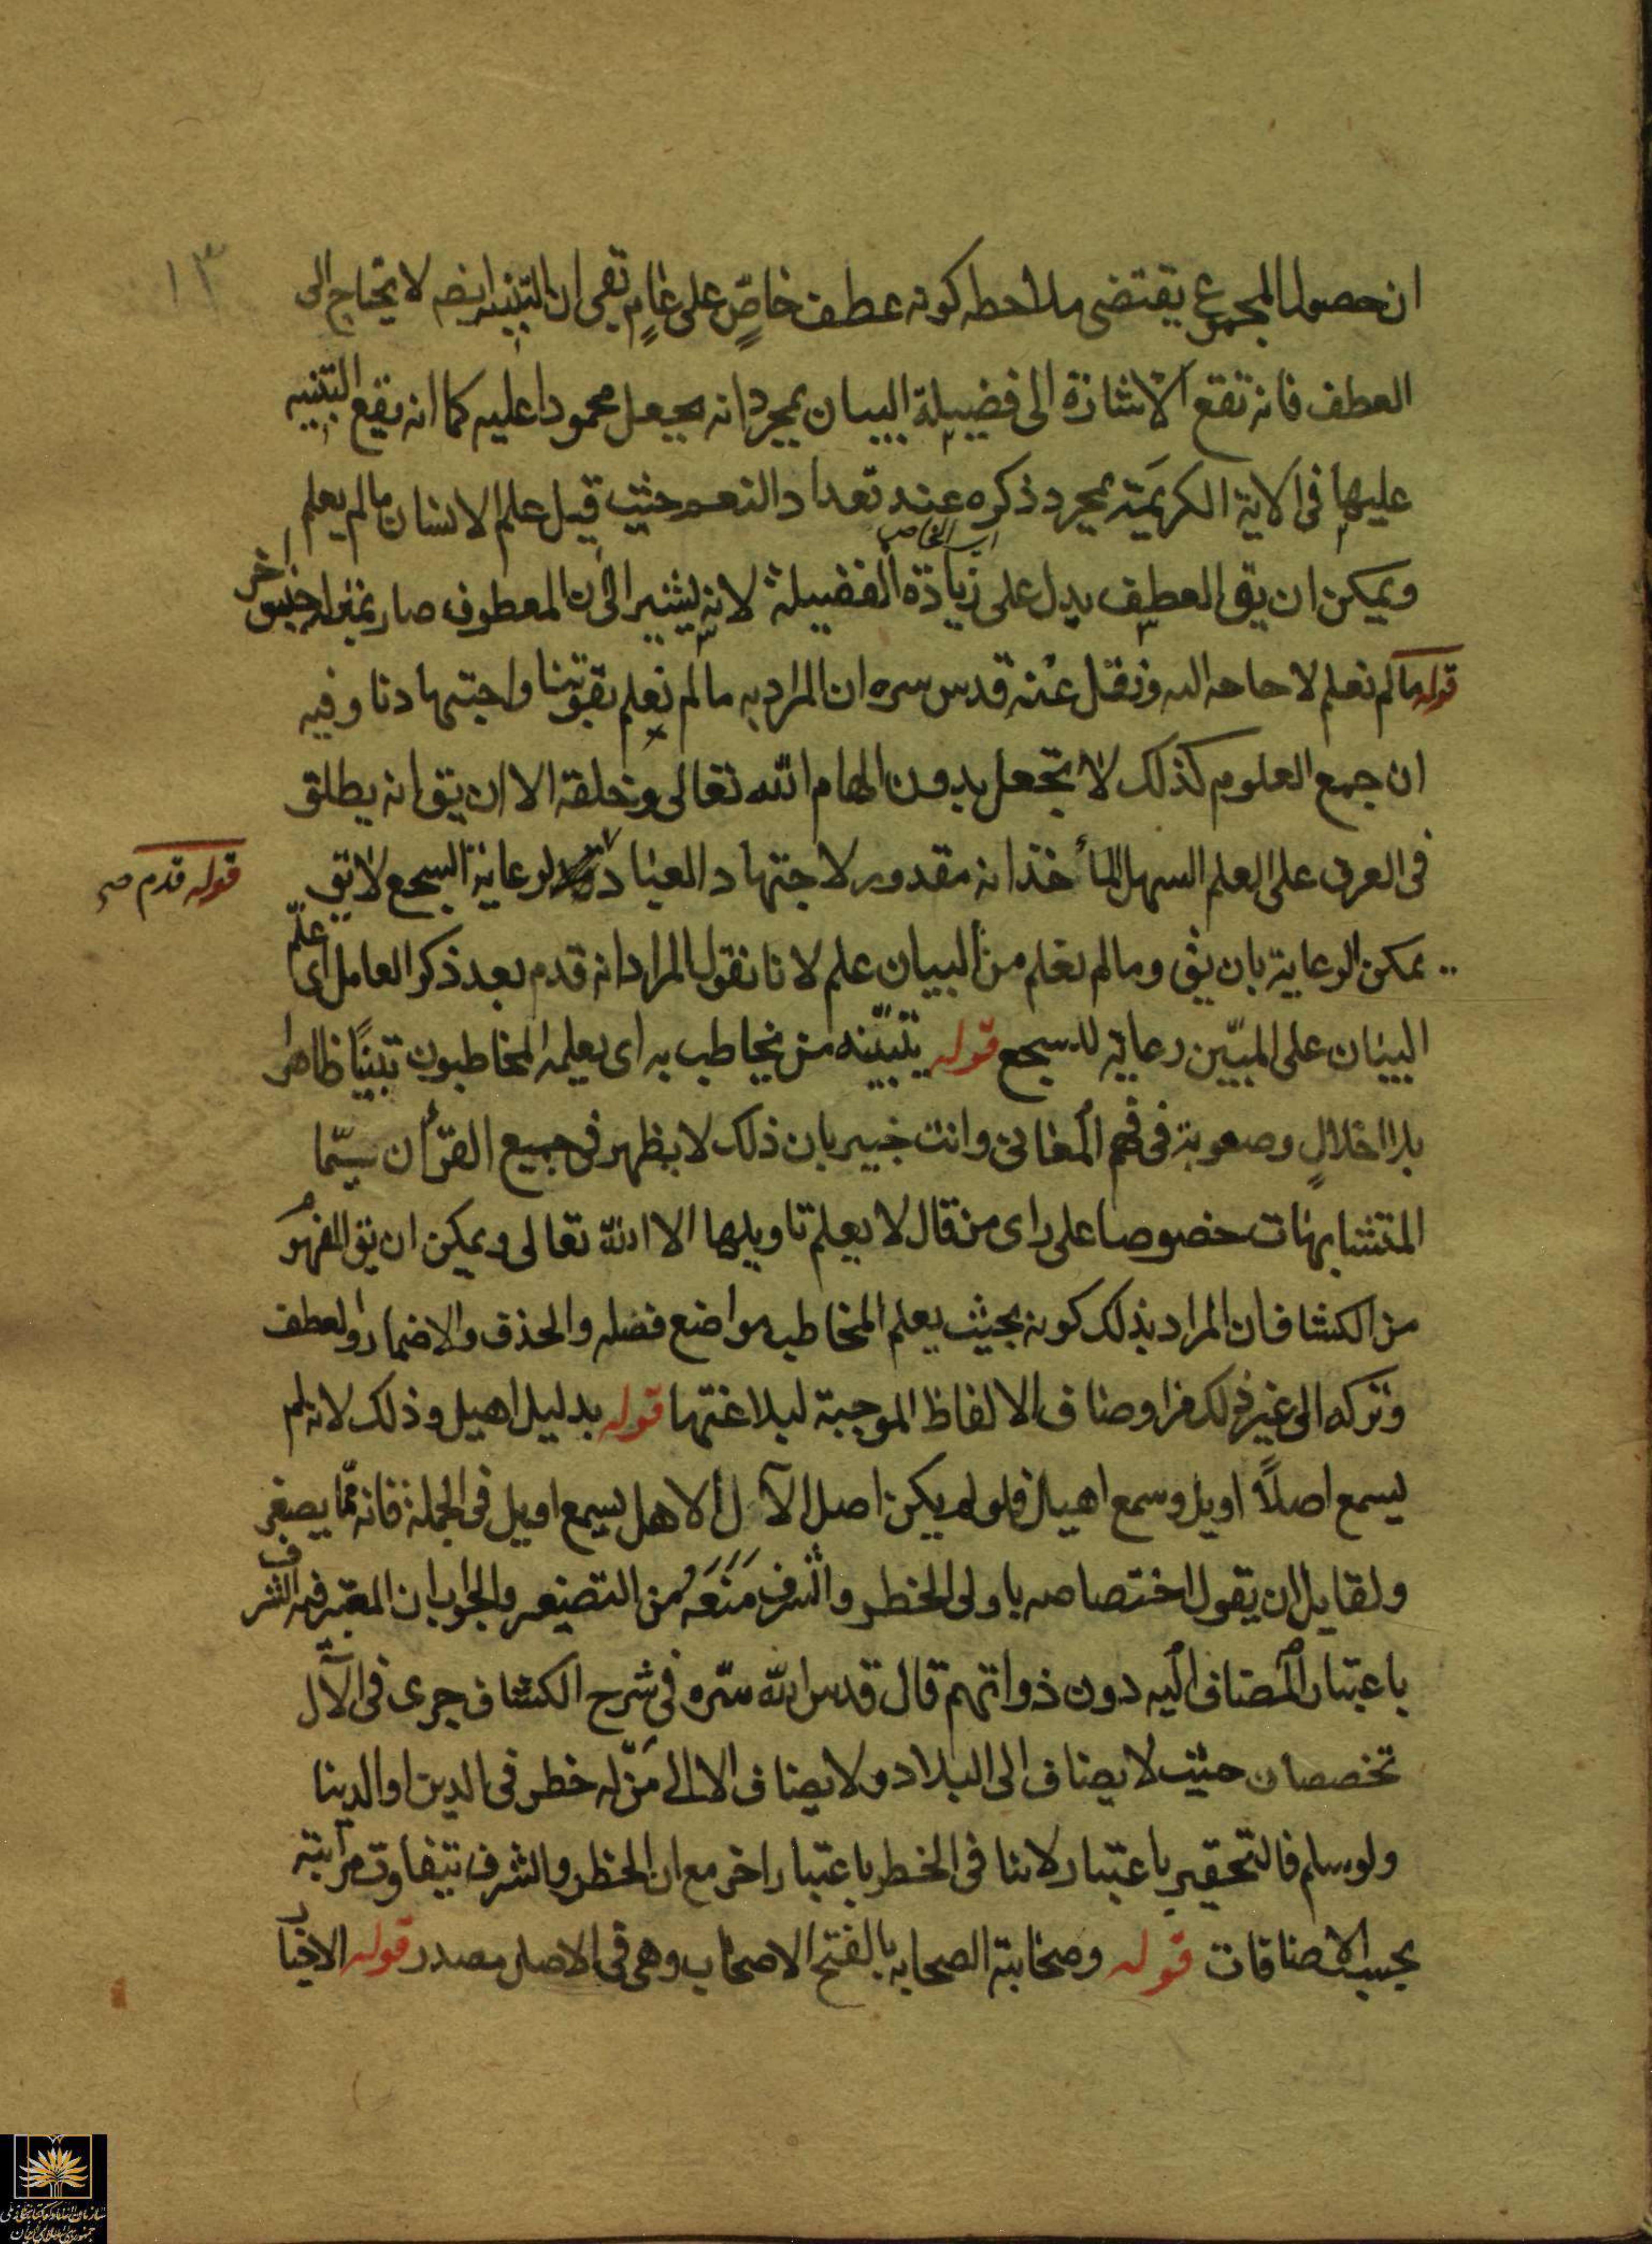 ١٣
ان حصول المجموع يقتضى ملاحظه كونه عطف خاصٍّ على عامٍ بقى ان التنبيه ايضه لا يحتاج الى
العطف فانه تقع الاشارة الى فضيلة البيان بمجرد انه يجعل محمودا عليه كما انه يقع التنبيه
عليها فى الاية الكريمة بمجرد ذكره عند تعداد النعم حيث قيل علم الانسان ما لم يعلم
اى الخاص
ويمكن ان يق العطف يدل على زيادة الفضيلة لانه يشير الى ان المعطوف صار بمنزلة جنس اخر
قوله ما لم نعلم لا حاجه اليه ونقل عنه قدس سره ان المراد به ما لم نعلم بقوتنا واجتهادنا وفيه
ان جميع العلوم كذلك لا تحصل بدون الهام الله تعالى وخلقه الا ان يق انه يطلق
فى العرف على العلم السهل المأخذ انه مقدور لاجتهاد العباد لرعاية السجع لا يق
قوله قدم صح
يمكن الرعاية بان يق وما لم نعلم من البيان علم لانا نقول المراد انه قدم بعد ذكر العامل اى علّم
البيان على المبيّن رعاية للسجع قوله يتبيّنه من يخاطب به اى يعلمه المخاطبون تبينًا ظاهرا
بلا اخلالٍ وصعوبة فى فهم المعانى وانت خبير بان ذلك لا يظهر فى جميع القرأن سيّما
المتشابهات خصوصا على راى من قال لا يعلم تاويلها الا الله تعالى ويمكن ان يق المفهوم
من الكشاف ان المراد بذلك كونه بحيث يعلم المخاطب مواضع فصله والحذف والاضمار والعطف
وتركه الى غير ذلك من اوصاف الالفاظ الموجبة لبلاغتها قوله بدليل اهيل وذلك لانه لم
يسمع اصلاً اويل وسمع اهيل فلو لم يكن اصل الآل الاهل يسمع اويل فى الجملة فانه ممّا يصغر
ولقايل ان يقول اختصاصه باولى الخطر والشرف مَنَعَه من التصغير والجواب ان المعتبر فيه الشرف
باعتبار المضاف اليه دون ذواتهم قال قدس الله سّره فى شرح الكشاف جرى فى الآل
تخصصان حيث لا يضاف الى البلاد ولا يضاف الا الى مَن له خطر فى الدين او الدنيا
ولو سلم فالتحقير باعتبار لا ينافى الخطر باعتبار اخر مع ان الخطر والشرف يتفاوت مراتبه
بحسب الاضافات قوله وصحابته الصحابه بالفتح الاصحاب وهى فى الاصل مصدر قوله الاخيار